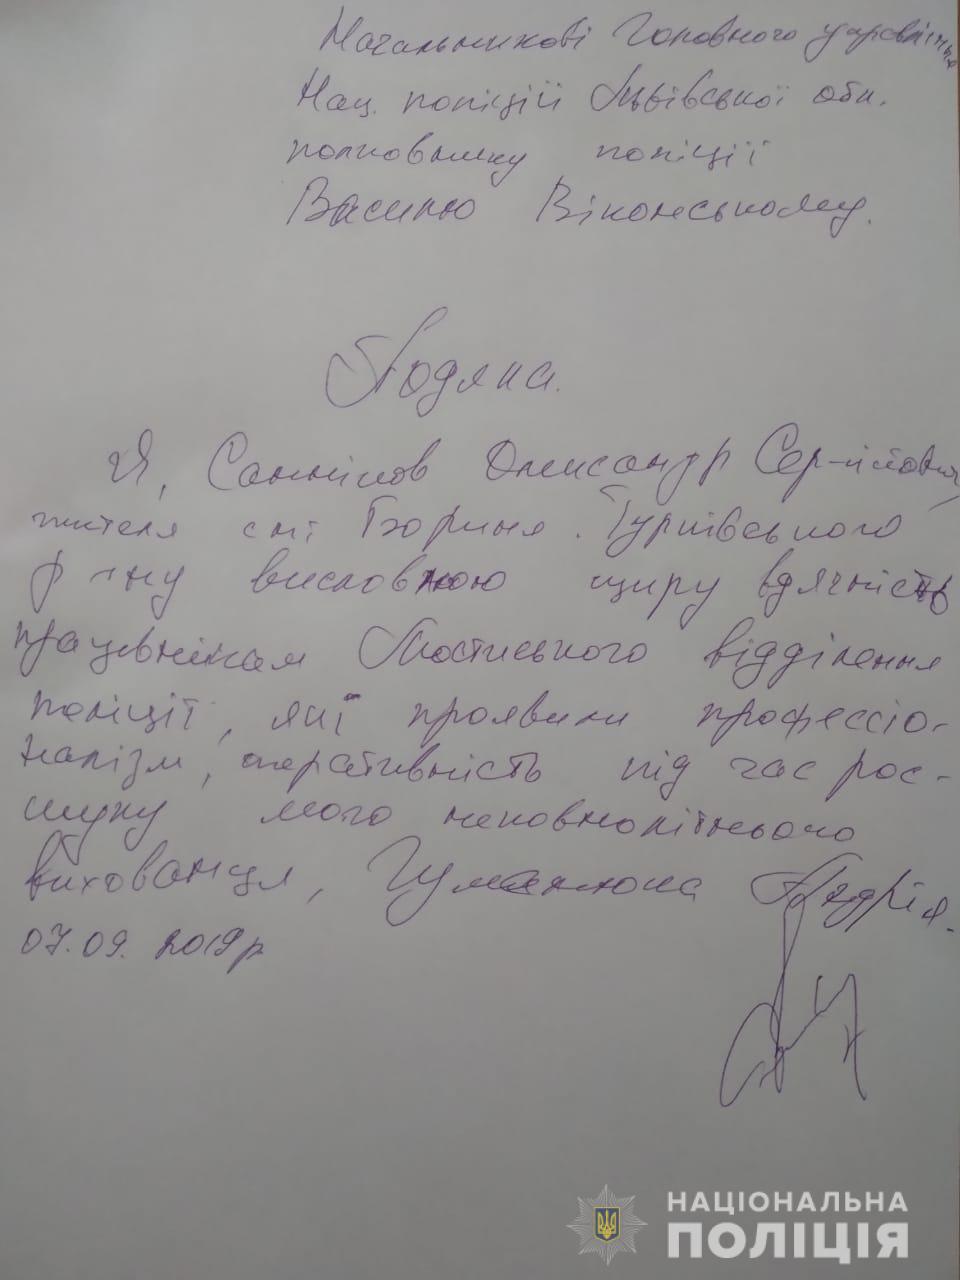 Начальникові Головного управління
Нац. поліції Львівської обл.
полковнику поліції
Василю Віконському.
Подяка.
Я, Олександр Сергійович,
жителя смт Бориня. Турківського
р-ну висловлюю щиру вдячність
працівникам Мостиського відділення
поліції, які проявили професіо-
налізм, оперативність під час роз-
шуку мого неповнолітнього
вихованця, Андрія.
07.09.2019р
НАЦІОНАЛЬНА
ПОЛІЦІЯ